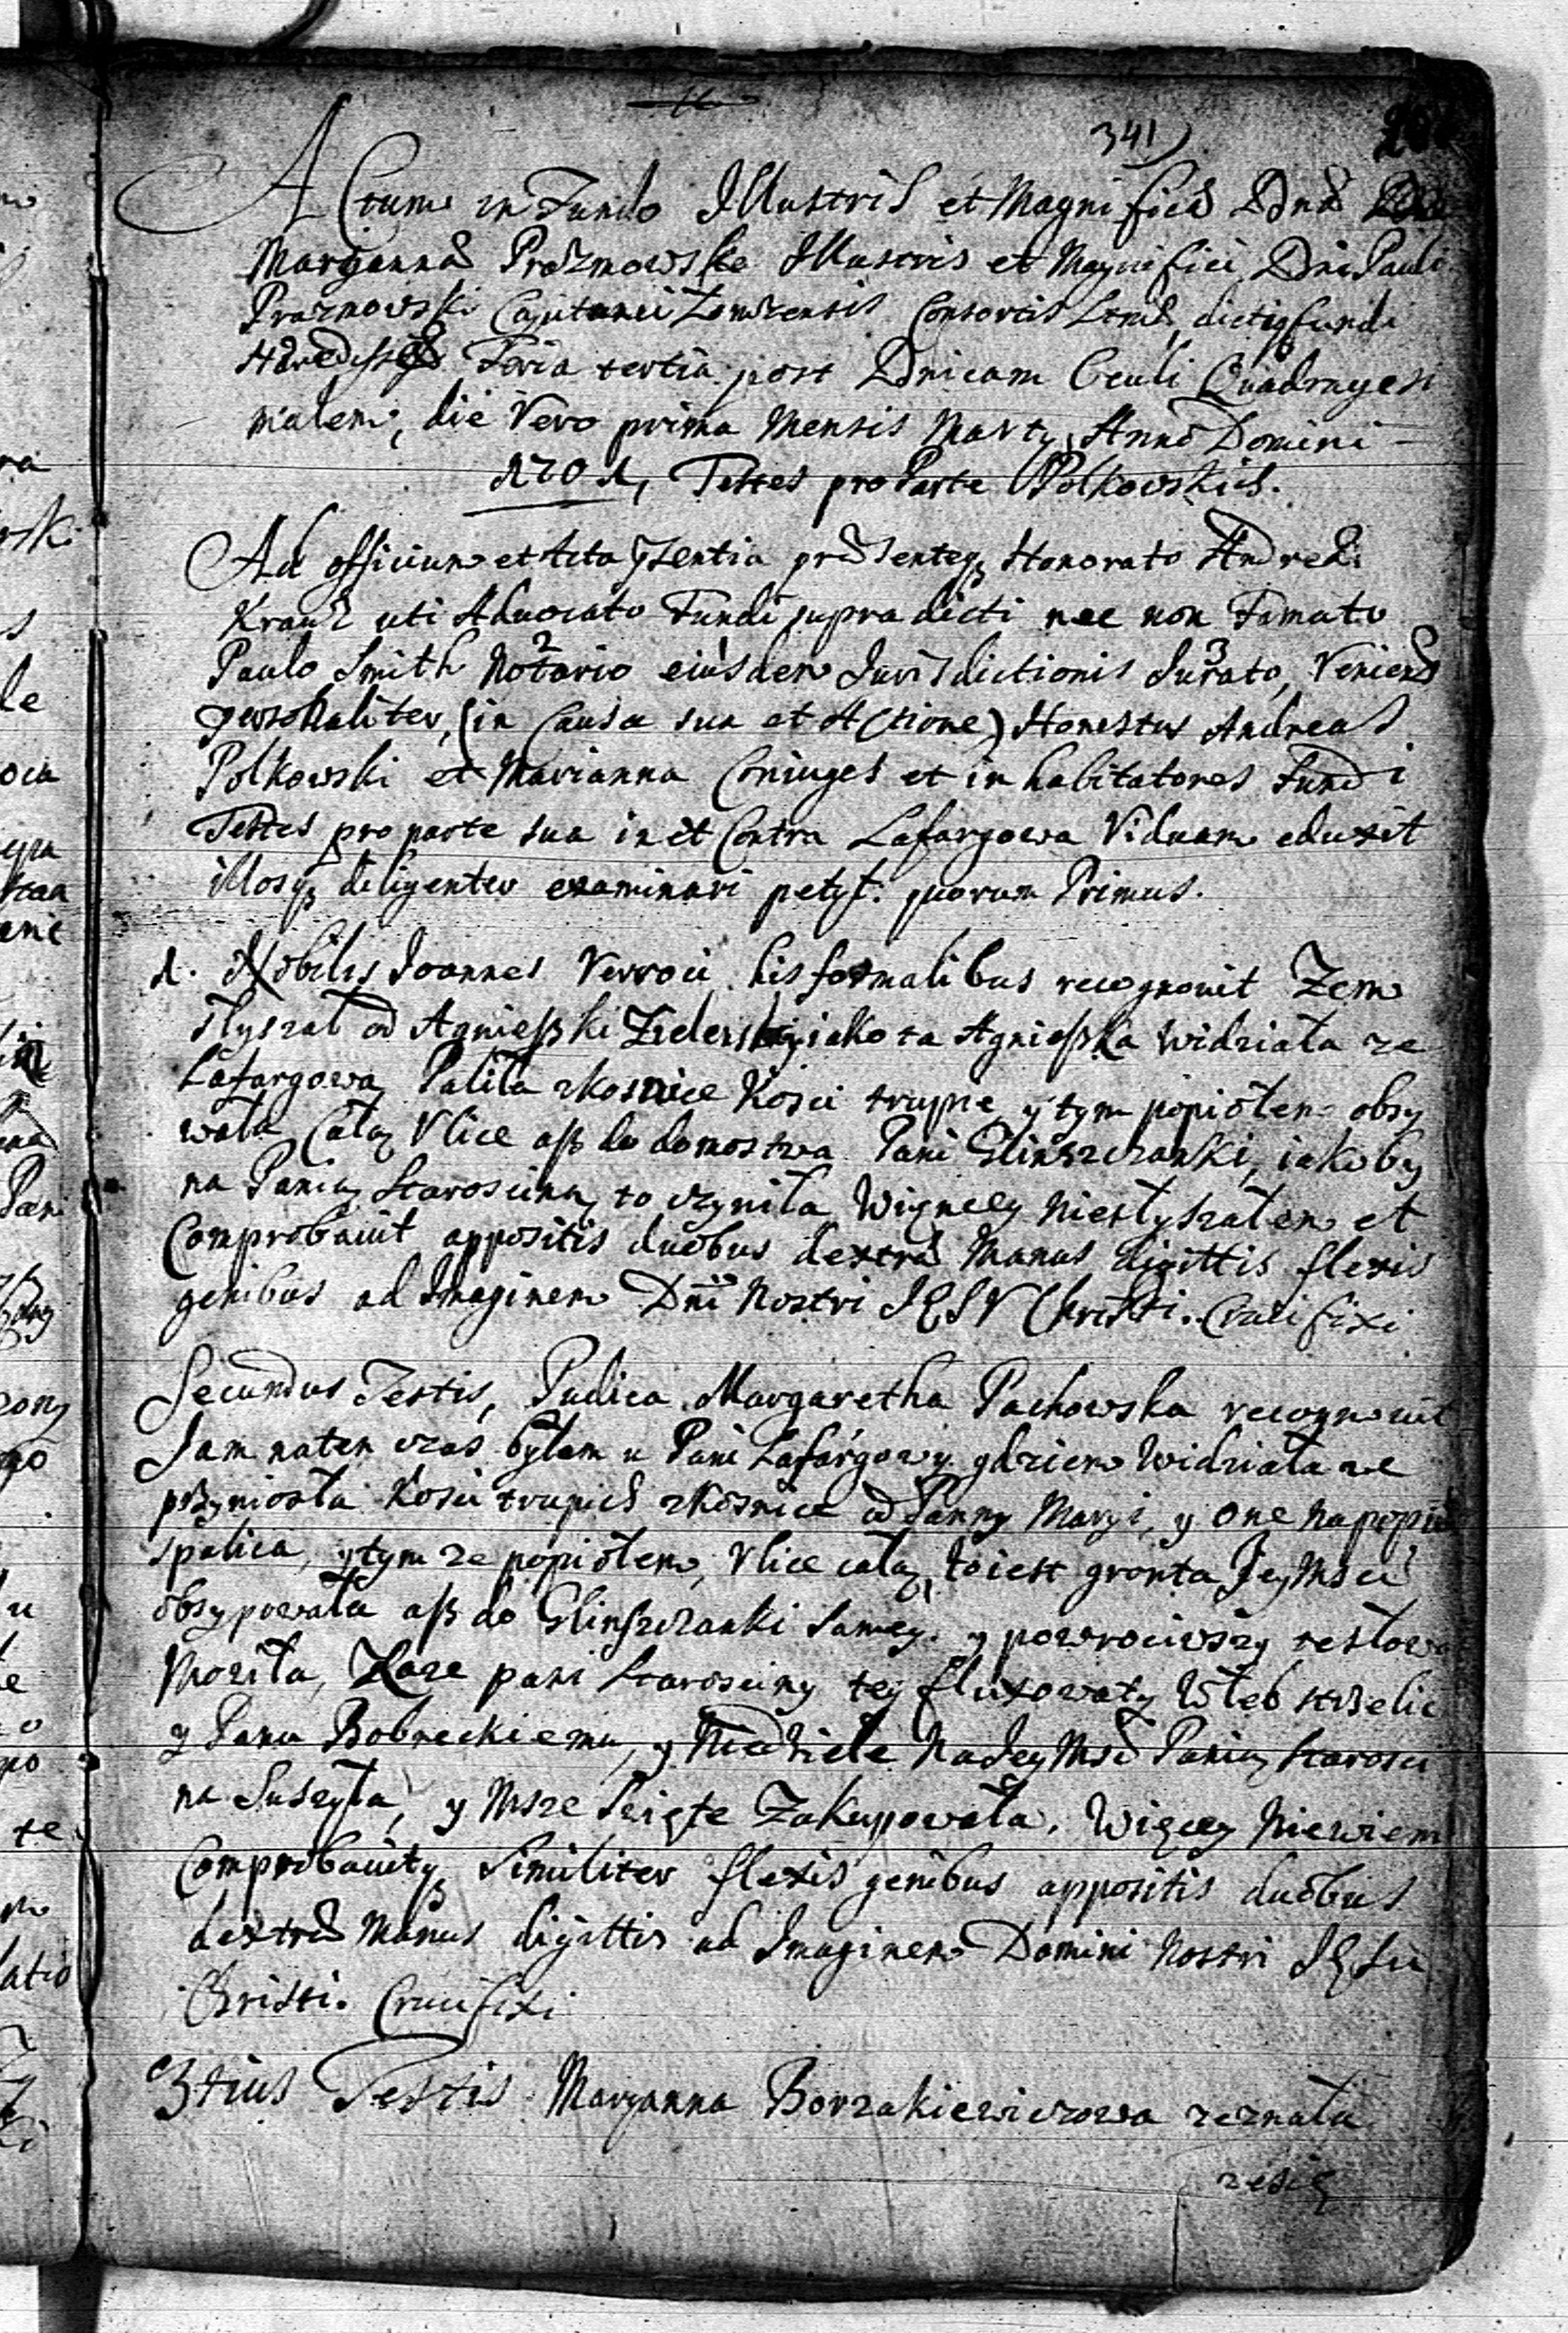 341)
Actum in Fundo Illustris et Magnificæ Dnæ
Maryannæ Prazmowske Illustris et Magnifici Dni Pauli
Prazmowski Capitanei Lomzensis Consortis dictiqz fundi
Feria tertia post Dnicam Oculi Quadragesi
malem, die Vero prima Mensis Marty Anno Domini
1701, Testes pro Parte Polkowskich.
Ad officium et Acta præsentia præsenteqz Honorato Andreæ
Krauz uti Aduocato Fundi supra dicti nec non Famato
Paulo Smith Notario eiusdem Jurisdictionis Jurato, Veniens
personaliter, (in Causa sua et Actione) Honestus Andreas
Polkowski et Marianna Coniuges et in habitatores Fundi
Testes pro parte sua in et Contra Lafargowa Viduam eduxit
illosqz deligenter examinari petyt. quorum Primus.
1. Nobilis Joannes Verroci his formalibus recognouit Zem
słyszał od Agnieszki iako ta Agnieszka widziała ze
Lafargowa Paliła zkosnice Kosci trupie y tym popiołem obsy
wała Całą Vlice asz do domostwa Pani Glinszczanki, iakoby
na Panią Staroscinę to vczyniła Więncey niesłyszałem et
Comprobauit appositis duobus dextræ Manus digittis flexis
genibus ad Imaginem Dni Nostri JESV Christi. Crucifixi
Secundus Testis, Pudica Margaretha Pachowska recognouit
Jam naten czas byłam u Pani Lafargowy gdziem Widziała ze
przyniosła Kosci trupich zkosnice od Panny Maryi, y one na popiół
spaliła, ytym ze popiołem, Vlice całą, toiest gronta Jey Msci
obsypowała asz do Glinszczanki Samey. y powrociwszy te słowa
Mowiła, Zaze pani Starosciny tey fluxowaty Włeb strzelic
y Panu Bobreckiemu, y Niedziele Na Jey Msc Panią Starosci
na Suszyła, y Msze Swięte Zakupowała. Więcey Niewiem
Comprobauitqz Similiter flexis genibus appositis duobus
dextræ Manus digittis ad Imaginem Domini Nostri Jesu
Christi. Crucifixi
3tius Testis Maryanna Borzakiewiczowa zeznała
zesię